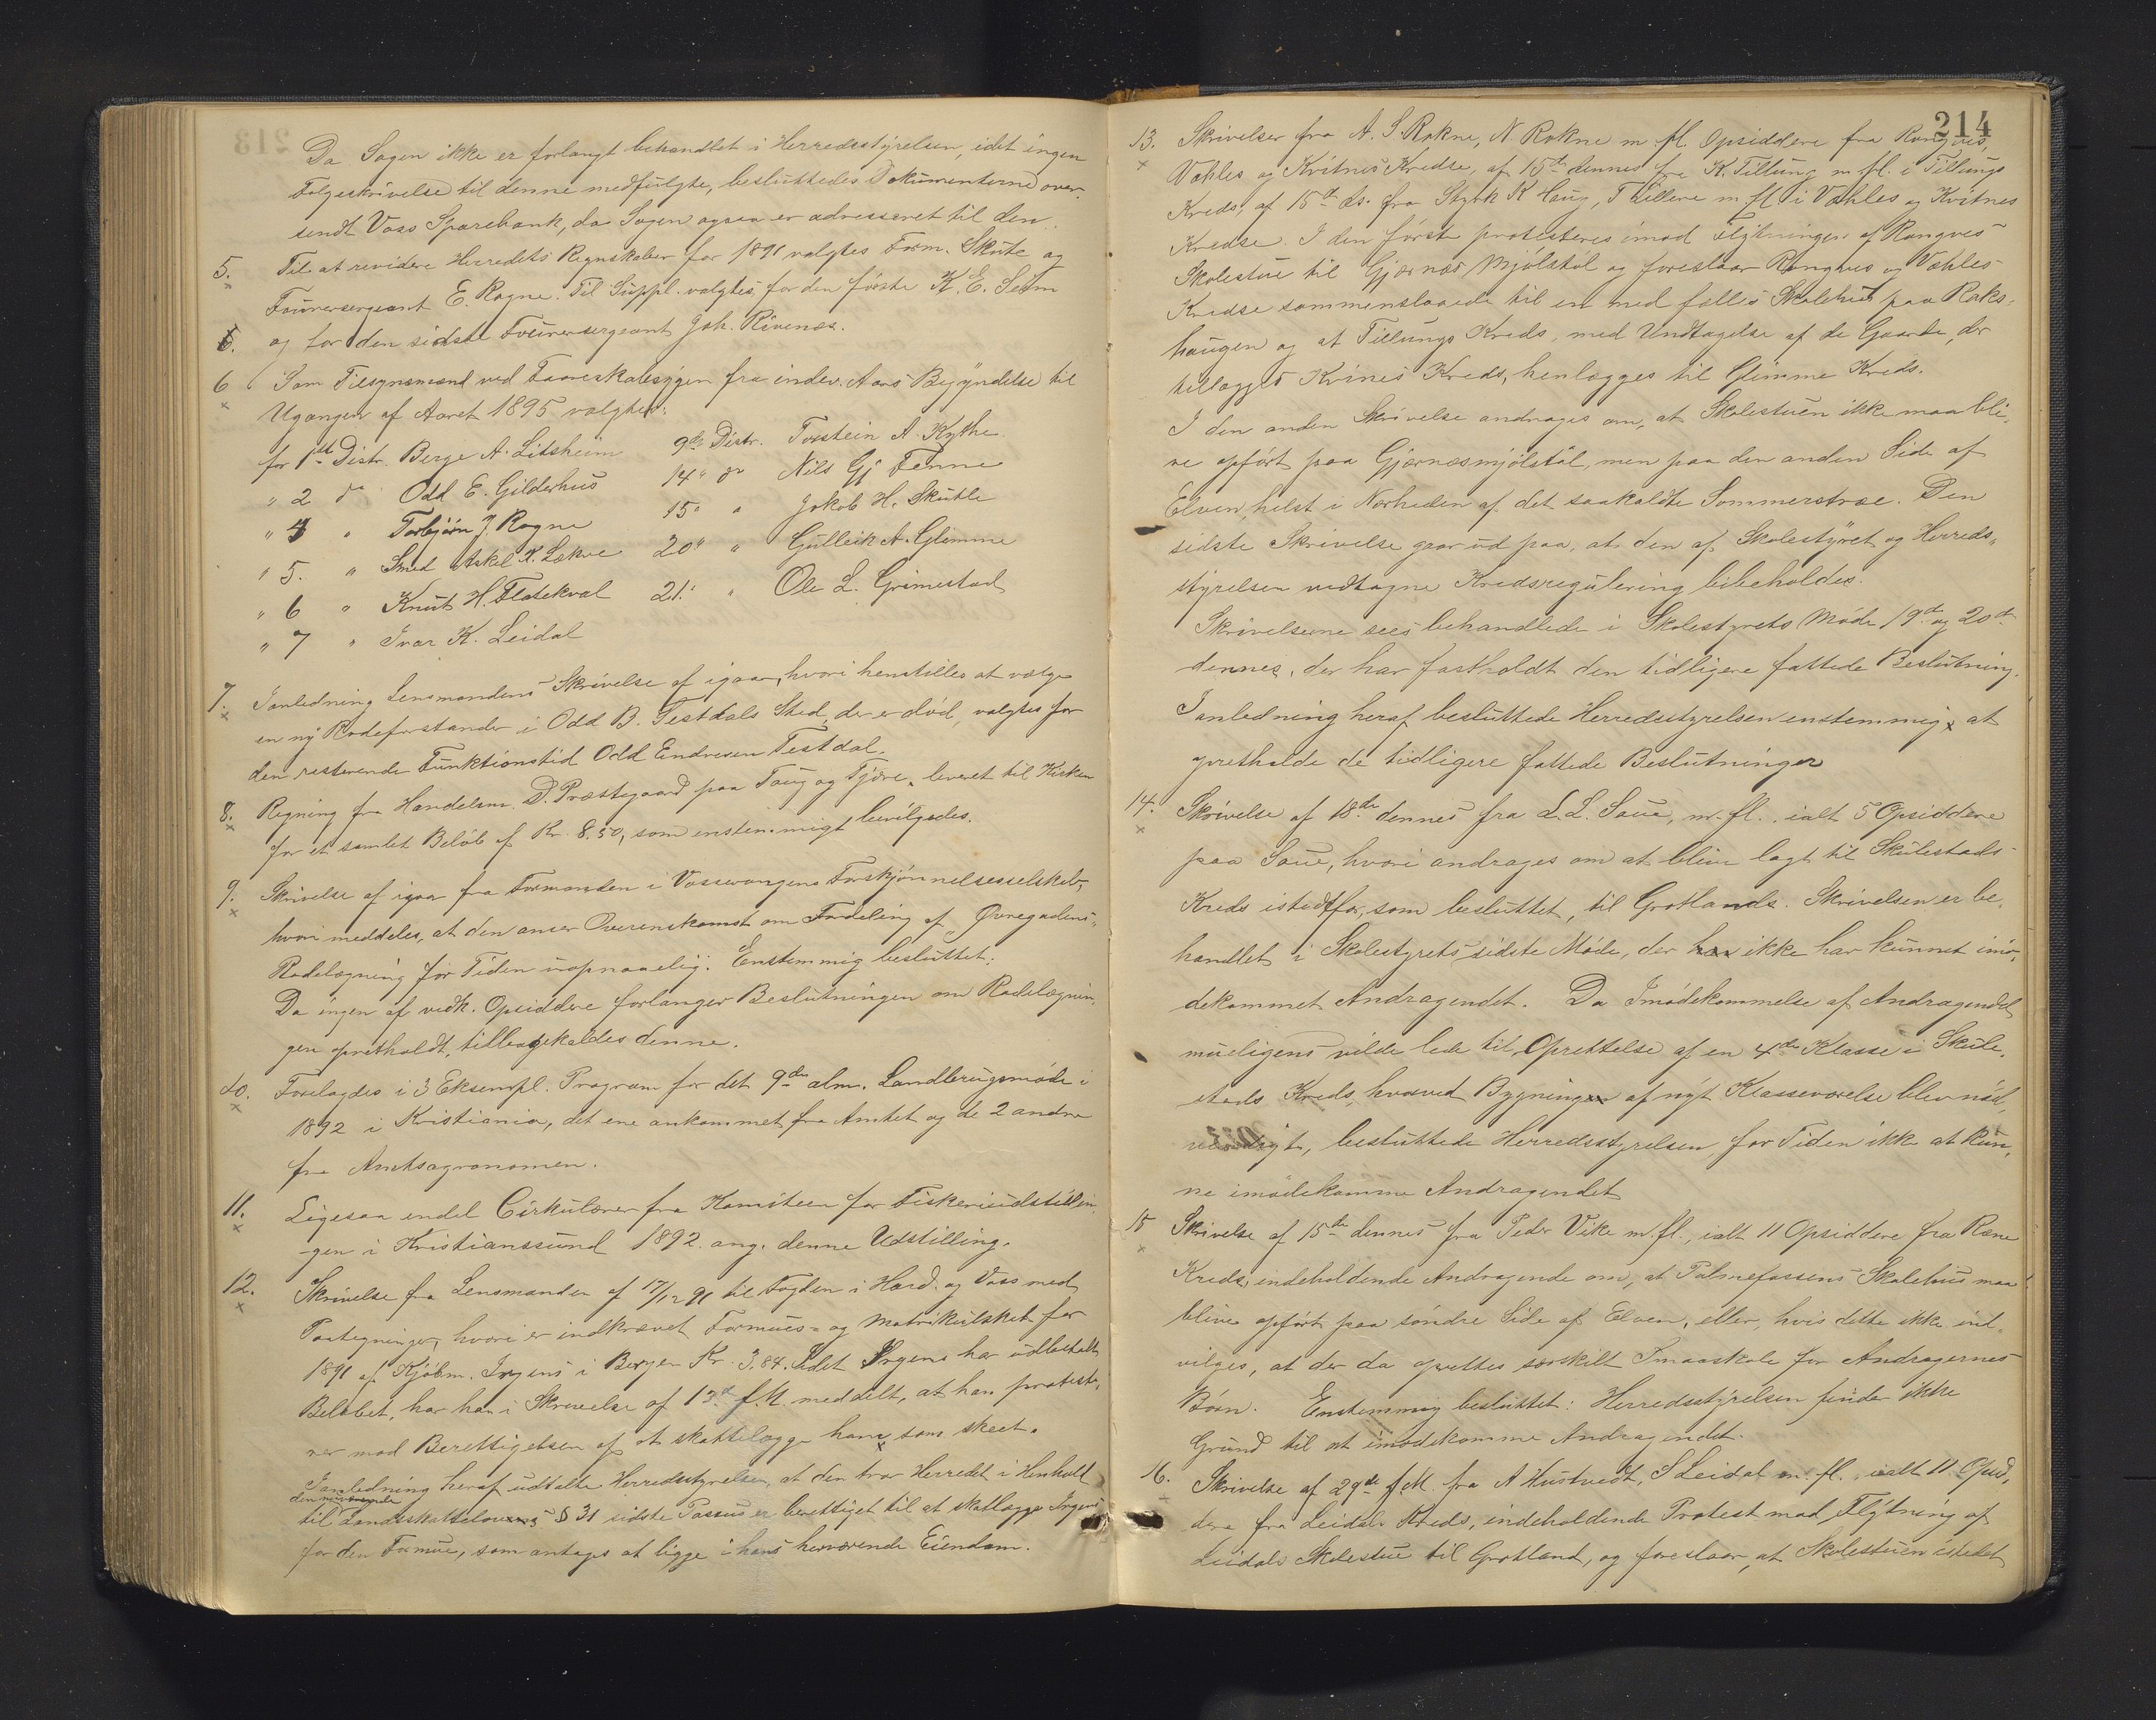 Da Sagen ikke er forlangt behandlet i Herredsstyrelsen, idet ingen
Følgeskrivelse til denne medfulgte, besluttedes Dokumenterne over-
sendt Voss Sparebank, da Sagen ogsaa er adresseret til den.
5. Til at revidere Herredets Regnskaber for 1891 valgtes Form. Skutle og
Fourersergeant E. Rogne. Til Suppl. valgtes for den første K. E. Seim
og for den sidste Fourersergeant Joh. Rivenæs.
6 Som Tilsynsmænd ved Faareskabsygen fra indev. Aars Begyndelse til
Udgangen af Aaret 1895 valgtes:
for 1ste Distr. Berge A. Litsheim 9de Distr. Torstein A. Kythe
" 2 do Odd E. Gilderhus 14" do Nils Gj Tenne
" 4 " Torbjørn J Rogne 15" " Jakob H. Skutle
" 5. " Smed Askel K. Lekve 20" " Gulleik A. Glimme
" 6 " Knut H. Flatekval 21" " Ole L. Grimestad
" 7 " Ivar K. Leidal
7. I anledning Lensmandens Skrivelse af igaar, hvori henstilles at vælge
en ny Rodeforstander i Odd B. Testdals Sted, der er død, valgtes for
den resterende Funktionstid Odd Endresen Testdal.
8. Regning fra Handelsm. D. Præstegaard paa Taug og Tjære, leveret til Kirken
for et samlet Beløb af Kr. 8.50, som enstemmigt bevilgedes.
9. Skrivelse af igaar fra Formanden i Vossevangens Forskjønnelsesselskab,
hvori meddeles, at den anser Overenskomst om Fordeling af "Øvregadens"
Rodelægning for Tiden uopnaaelig. Enstemmig besluttet:
Da ingen af vedk. Opsiddere forlanger Beslutningen om Rodelægnin-
gen opretholdt, tilbagekaldes denne.
10. Forelagdes i 3 Eksempl. Program for det 9de alm. Landbrugsmøde i
1892 i Kristiania, det ene ankommet fra Amtet og de 2 andre
fra Amtsagronomen.
11. Ligesaa endel Cirkulærer fra Komiteen for Fiskeriudstillin-
gen i Kristianssund 1892 ang. denne Udstilling.
12. Skrivelse fra Lensmanden af 17/12 91 til Fogden i Hard. og Voss med
Paategninger, hvori er indkrævet Formues- og Matrikulskat for
1891 af Kjøbm. Irgens i Bergen Kr. 3.84. Idet Irgens har udbetalt
Beløbet, har han i Skrivelse af 13de f. M. meddelt, at han proteste-
rer mod Berettigelsen af at skattelægge ham, som skeet.
I anledning heraf udtalte Herredsstyrelsen, at den tror Herredet i Henhold
til Landsskatteloven § 31 sidste Passus er berettiget til at skatlægge Irgens
for den Formue, som antages at ligge i hans herværende Eiendom.
214
13. Skrivelser fra A. S. Rokne, N Rokne m. fl. Opsiddere fra Rongves,
Væhles og Kvitnes Kredse, af 15de dennes fra K. Tillung m fl. i Tillungs
Kreds, af 15de ds. fra Styrk K Haug, T Lillere m fl i Væhles og Kvitnes
Kredse. I den første protesteres imod Flytningen af Rongves
Skolestue til Gjærnes Mjølstøl og foreslaar Rongves og Væhles
Kredse sammenslaaede til en med fælles Skolehus paa Roks-
haugen og at Tillungs Kreds, med Undtagelse af de Gaarde, der
tillægges Kvitnes Kreds, henlægges til Glimme Kreds.
I den anden Skrivelse andrages om, at Skolestuen ikke maa bli-
ve opført paa Gjærnesmjølstøl, men paa den anden Side af
Elven, helst i Nærheden af det saakaldte Sommerstræe. Den
sidste Skrivelse gaar ud paa, at den af Skolestyret og Herreds-
styrelsen vedtagne Kredsregulering bibeholdes.
Skrivelserne sees behandlede i Skolestyrets Møde 19de og 20de
dennes, der har fastholdt den tidligere fattede Beslutning.
I anledning heraf besluttede Herredsstyrelsen enstemmig at
opretholde de tidligere fattede Beslutninger
14. Skrivelse af 18de dennes fra L. L. Saue, m. fl. ialt 5 Opsiddere
paa Saue, hvori andrages om at blive lagt til Skulestads
Kreds istedetfor, som besluttet, til Grotlands. Skrivelsen er be-
handlet i Skolestyrets sidste Møde, der ikke har kunnet imø-
dekommet Andragendet. Da Imødekommelse af Andragendet
mueligens vilde lede til Oprettelse af en 4de Klasse i Skule-
stads Kreds, hvorved Bygning af nyt Klasseværelse blev nød-
vendigt, besluttede Herredsstyrelsen for Tiden ikke at kun-
ne imødekomme Andragendet
15 Skrivelse af 15de dennes fra Peder Vike m. fl., ialt 11 Opsiddere fra Rene
Kreds, indeholdende Andragende om, at Palmefossens Skolehus maa
blive opført paa søndre Side af Elven, eller, hvis dette ikke ind-
vilges, at der da oprettes særskilt Smaaskole for Andragernes
Børn. Enstemmig besluttet: Herredsstyrelsen finder ikke
Grund til at imødekomme Andragendet.
16. Skrivelse af 29de f. M. fra A Hustvedt, S Leidal m. fl. ialt 11 Opsid-
dere fra Leidals Kreds, indeholdende Protest mod Flytning af
Leidals Skolestue til Grotland, og foreslaar, at Skolestuen istedet